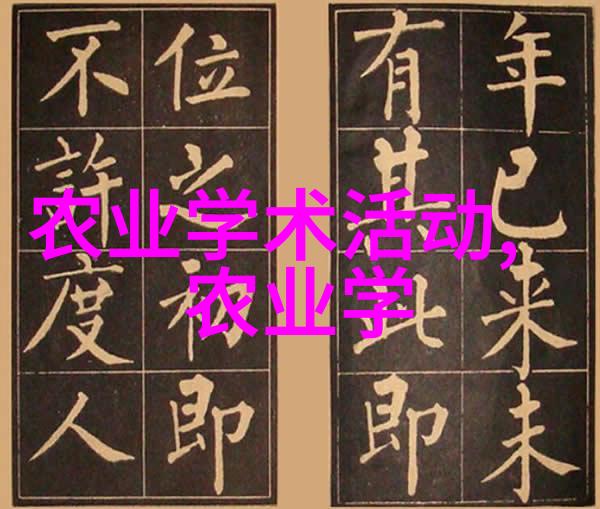 年已来未
有其此即
位之初即
不許度人
农业学术活动,
农业学